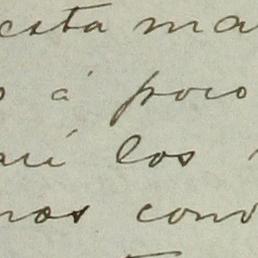 esta ma
á poco
los
nos conv